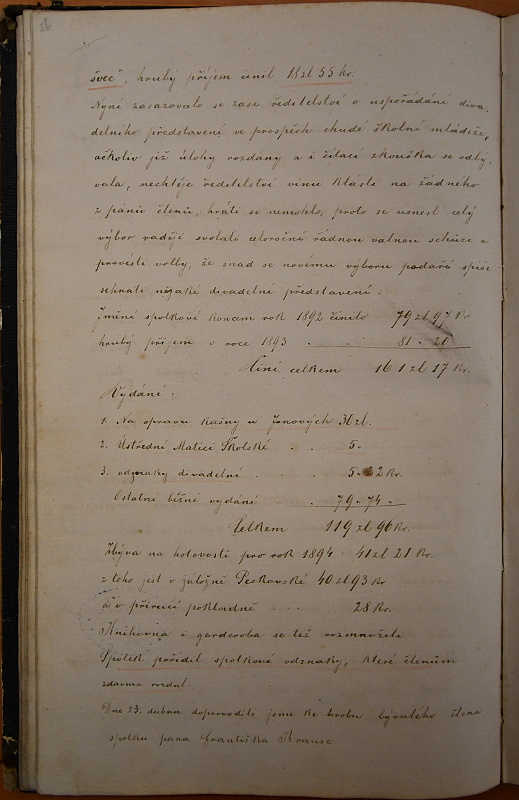 56
švec", hrubý příjem činil 18 zl 55 Kr.
Nyní zasazovalo se zase ředitelství o uspořádání diva-
delního představení ve prospěch chudé školní mládeže,
ačkoliv již úlohy rozdány a i čítací zkouška se odbý-
vala, nechtěje ředitelství vinu klásti na žádného
z pánů členů, hráti se nemohlo, proto se usnesl celý
výbor raději svolati celoroční řádnou valnou schůzi a
provésti volby, že snad se novému výboru podaří spíše
sehrati nějaké divadelní představení.
Jmění spolkové koncem rok 1892 činilo 79 zl 97 Kr
hrubý příjem v roce 1893 . . 81 . 20
Činí celkem 161 zl 17 Kr.
Vydání:
1. Na opravu kašny u Jonových 30 zl.
2. Ústřední Matici Školské . . 5 -
3. odznaky divadelní . . . 5 . 22 Kr.
Ostatní běžné vydání . . . 79 . 74 .
Celkem 119 zl 96 Kr.
Zbývá na hotovosti pro rok 1894 . 41 zl 21 Kr.
z toho jest v záložně Peckovské 40 zl 93 Kr
a v příručí pokladně . . . 28 Kr.
Knihovna i garderoba se též rozmnožili
Spolek pořídil spolkové odznaky, které členům
zdarma rozdal
Dne 23. dubna doprovodili jsme ke hrobu bývalého člena
spolku pana Františka Krause